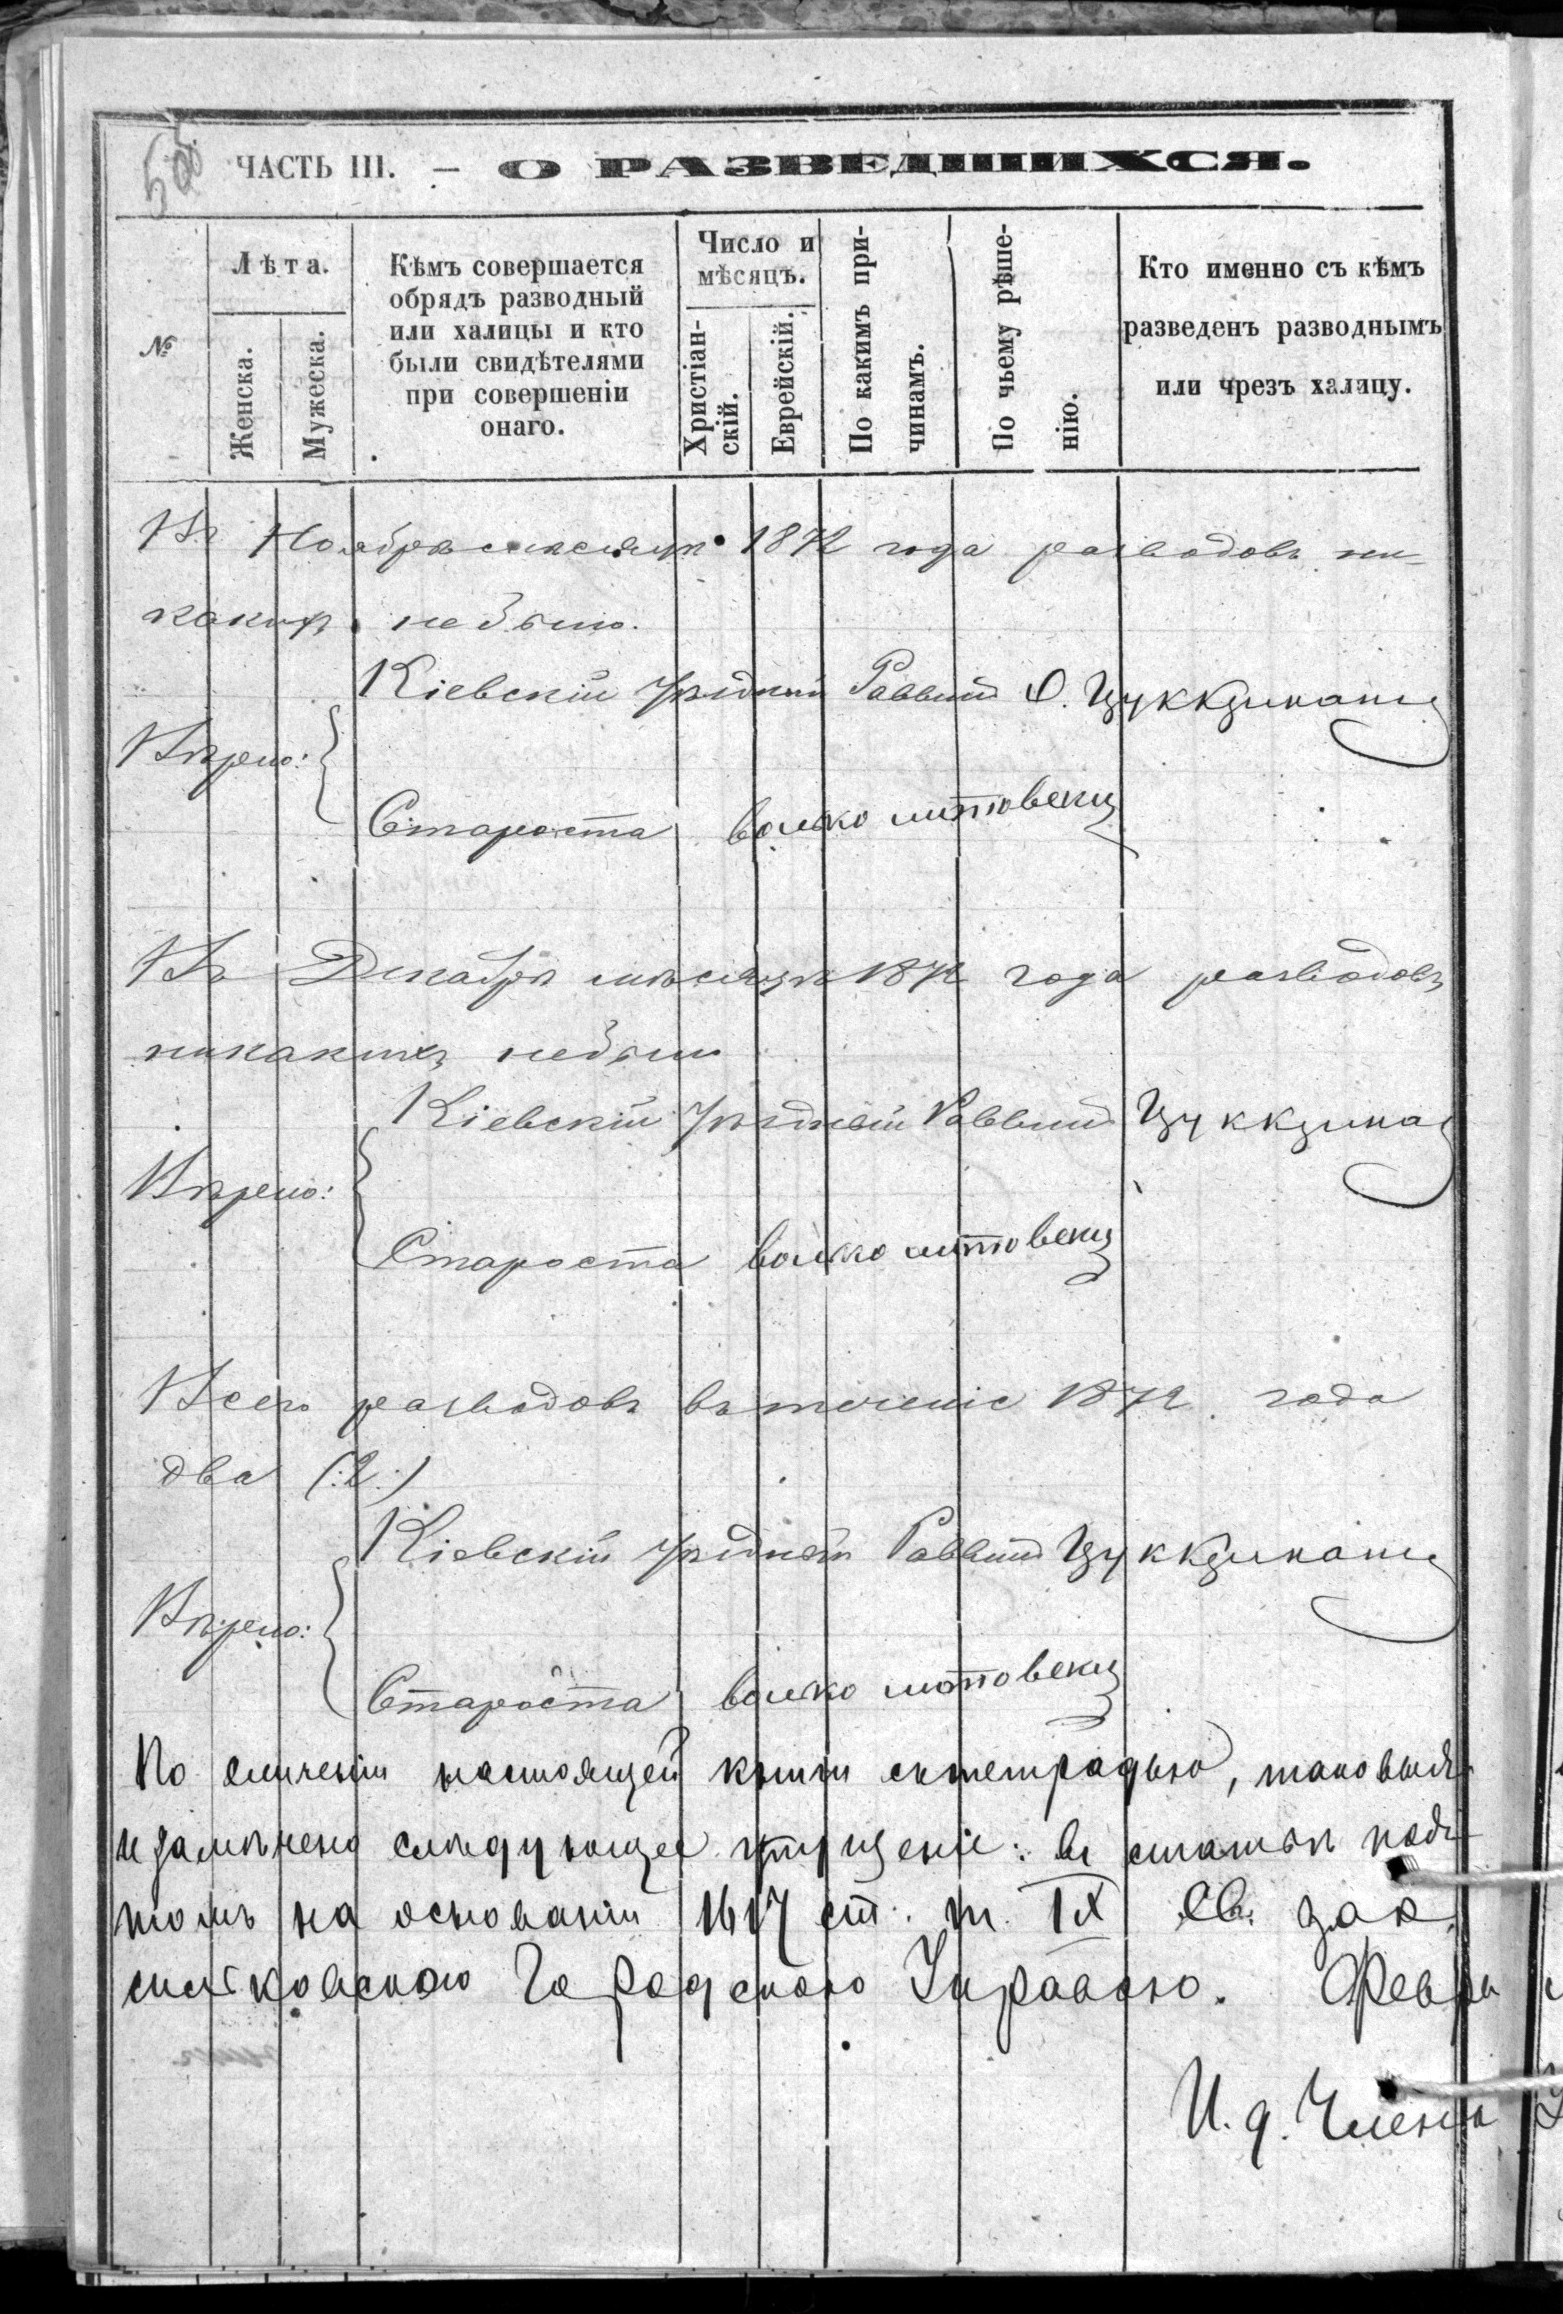 ЧАСТЬ III. — О РАЗВЕДШИХСЯ.
№
Лѣта.
Женска.
Мужеска.
Кѣмъ совершается
обрядъ разводный
или халицы и кто
были свидѣтелями
при совершеніи
онаго.
Число и
мѣсяцъ.
Христіан-
скій.
Еврейскій.
По какимъ при-
чинамъ.
По чьему рѣше-
нію.
Кто именно съ кѣмъ
разведенъ разводнымъ
или чрезъ халицу.
Въ Ноябрѣ мѣсяцѣ 1872 года разводовъ ни-
какихъ небыло.
Кіевскій Уѣздный Раввинъ Цуккерманъ
Вѣрно:
Староста Волько Литовецъ
Въ Декабрѣ мѣсяцѣ 1872 года разводовъ
никакихъ небыло
Кіевскій Уѣздный Раввинъ
Вѣрно:
Староста Волько Литовецъ
Всего разводовъ въ теченіе 1872 года
два (:2:)
Кіевскій Уѣздный Раввинъ Цуккерманъ
Вѣрно:
Староста Волько Литовецъ
По сличеніи настоящей книги сътетрадью, таковыя
и замѣчено слѣдующее упущеніе: въ статьѣ
на основаніи 1617 ст. т. IX Св. Зак.
Городскою Управою. Февра
И. д. Члена